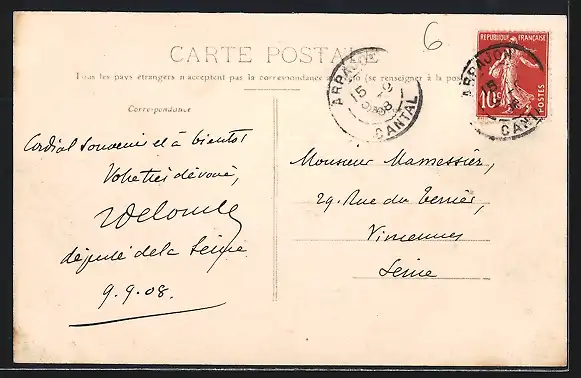 6
CARTE POSTALE
Tous les pays étrangers n'acceptent pas la correspondance au recto (se renseigner à la poste)
REPUBLIQUE FRANÇAISE
10c
POSTES
ARPAJON
15
9
08
CANTAL
ARPAJON
15
CANTAL
Correspondance
Cordial souvenir et à bientôt
Votre très dévoué,
député de la Seine
9.9.08.
Monsieur Mamessier,
29. Rue du Terrier,
Vincennes
Seine